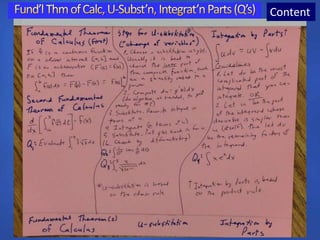 Fund'l Thm of Calc, U-Subst'n, Integrat'n Parts (Q's)
Content
Fundamental Theorem
of Calculus (first)
If f is a continuous function
on a closed interval [a,b] and
F is an antiderivative (F'(x) = f(x))
on [a,b] then
∫ f(x)dx = F(x) = F(b) - F(a)
Second Fundamental
Theorem of Calculus
Q: Evaluate
Steps for U-substitution
("change of variables")
1. Choose a substitution u = g(x).
Usually, it is best to
choose the inner part of
the composite function such
as a quantity raised to a
power.
2. Compute du = g'(x)dx
3. Substitute. Rewrite integral in
terms of u
4. Integrate (in terms of u)
5. Substitute. Let g(x) back in for u
6. Check by differentiating!
* U-substitution is based
on the chain rule.
Integration by
Parts!
∫u dv = uv - ∫v du
Guidelines
1. Let dv be the most
complicated part of the
integrand that you can
integrate. OR
2. Let u be the part
of the integrand whose
derivative is simpler than
u itself. Then let dv
be the remaining factors of
the integrand.
Q: ∫ x e^x dx
* Integration by Parts is based
on the product rule
Fundamental Theorem(s)
of Calculus
U-substitution
Integration by
Parts